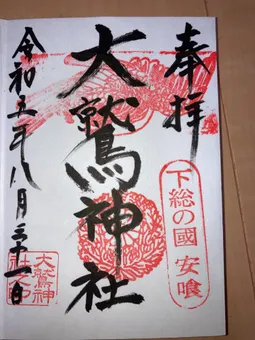 奉拝
下総の國 安喰
大鷲神社
大鷲神社之印
令和五年八月三十一日